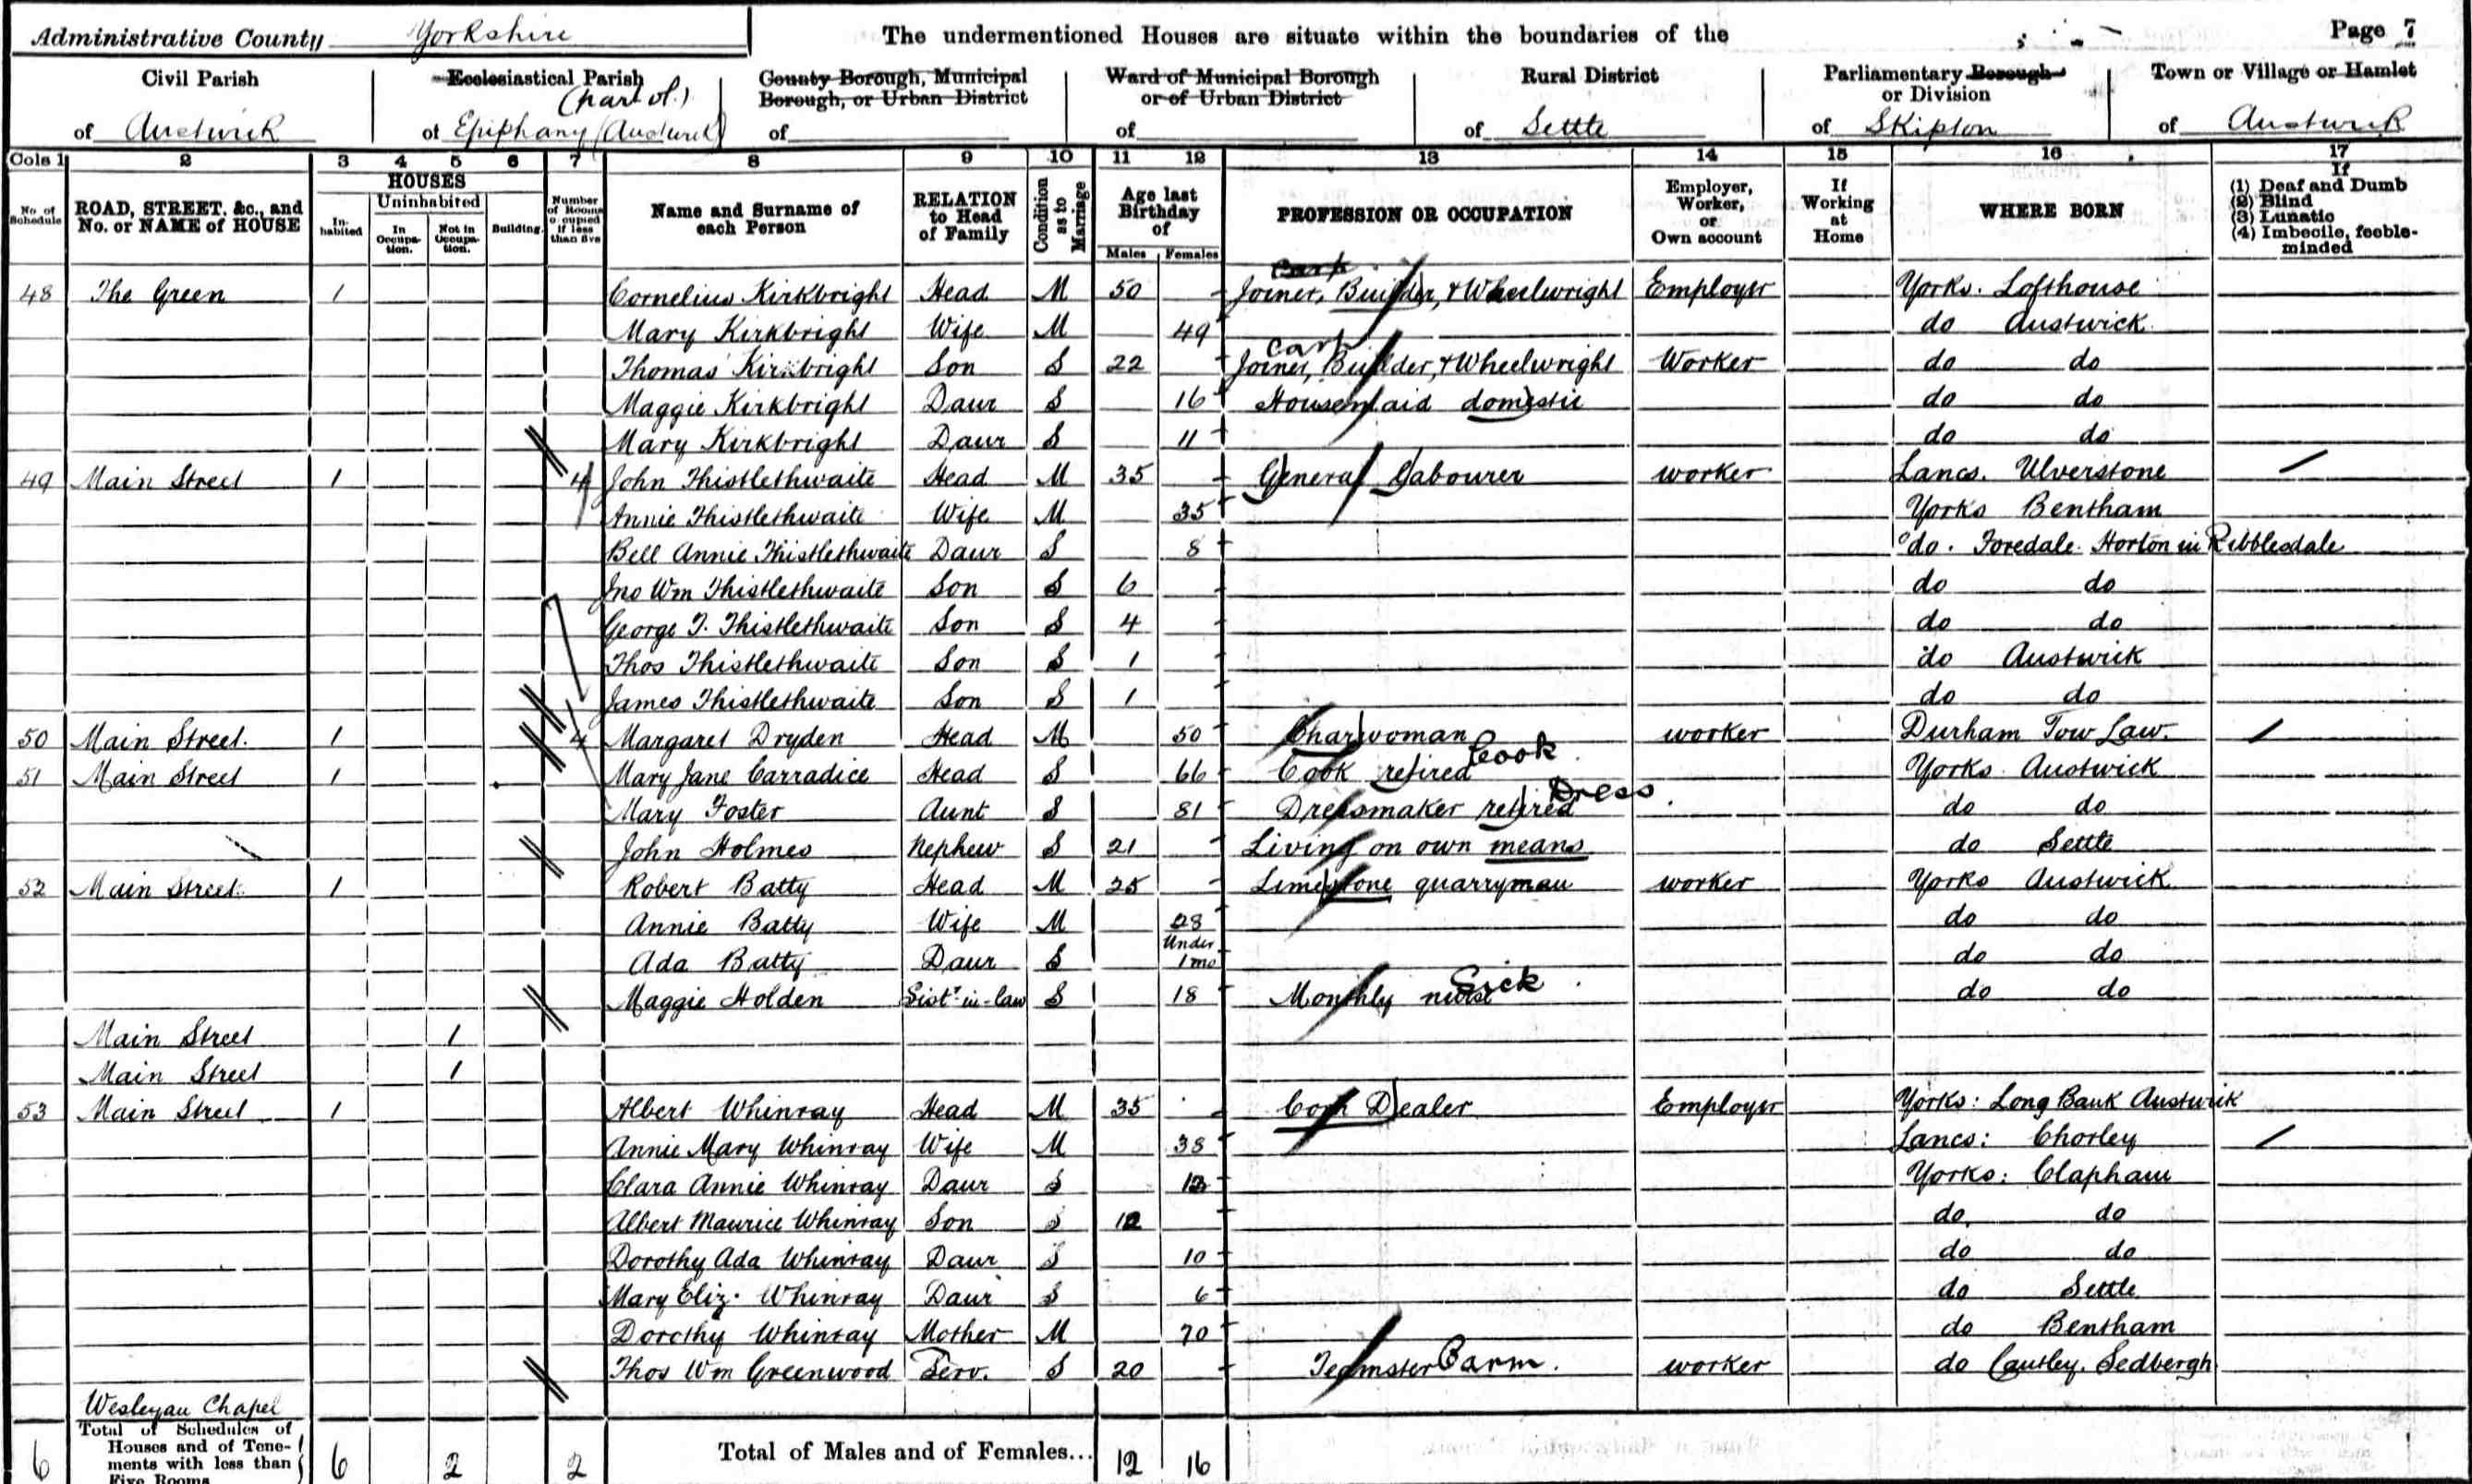 Administrative County Yorkshire The undermentioned Houses are situate within the boundaries of the Page 7
Civil Parish Ecclesiastical Parish County Borough, Municipal Borough, or Urban District Ward of Municipal Borough or of Urban District Rural District Parliamentary Borough or Division Town or Village or Hamlet
(part of)
of Austwick of Epiphany (Austwick) of of of Settle of Skipton of Austwick
Cols 1 2 3 4 5 6 7 8 9 10 11 12 13 14 15 16 17
No. of Schedule ROAD, STREET, &c., and No. or NAME of HOUSE HOUSES In-habited Uninhabited In Occupa-tion. Not in Occupa-tion. Building. Number of Rooms occupied if less than five Name and Surname of each Person RELATION to Head of Family Condition as to Marriage Age last Birthday of Males Females PROFESSION OR OCCUPATION Employer, Worker, or Own account If Working at Home WHERE BORN If (1) Deaf and Dumb (2) Blind (3) Lunatic (4) Imbecile, feeble-minded
Cark
48 The Green 1 Cornelius Kirkbright Head M 50 Joiner, Builder, & Wheelwright Employer Yorks. Lofthouse
Mary Kirkbright Wife M 49 do Austwick
Cark
Thomas Kirkbright Son S 22 Joiner, Builder, & Wheelwright Worker do do
Maggie Kirkbright Daur S 16 Housemaid domestic do do
Mary Kirkbright Daur S 11 do do
49 Main Street 1 4 John Thistlethwaite Head M 35 General Labourer worker Lancs. Ulverstone
Annie Thistlethwaite Wife M 35 Yorks Bentham
Bell Annie Thistlethwaite Daur S 8 do. Foredale Horton in Ribblesdale
Jno Wm Thistlethwaite Son S 6 do do
George T. Thistlethwaite Son S 4 do do
Thos Thistlethwaite Son S 1 do Austwick
James Thistlethwaite Son S 1 do do
50 Main Street. 1 4 Margaret Dryden Head M 50 Charwoman worker Durham Tow Law.
51 Main Street 1 Mary Jane Carradice Head S 66 Cook retired Cook Yorks Austwick
Mary Foster Aunt S 81 Dressmaker retired Dress. do do
John Holmes Nephew S 21 Living on own means do Settle
52 Main Street. 1 Robert Batty Head M 25 Limestone quarryman worker Yorks Austwick
Annie Batty Wife M 28 do do
Ada Batty Daur S Under 1 mo do do
Maggie Holden Sistr in-law S 18 Monthly nurse Sick do do
Main Street 1
Main Street 1
53 Main Street 1 Albert Whinray Head M 35 Corn Dealer Employer Yorks: Long Bank Austwick
Annie Mary Whinray Wife M 38 Lancs: Chorley
Clara Annie Whinray Daur S Yorks: Clapham
Albert Maurice Whinray Son S 12 do do
Dorothy Ada Whinray Daur S 10 do do
Mary Eliz. Whinray Daur S 6 do Settle
Dorothy Whinray Mother M 70 do Bentham
Thos Wm Greenwood Serv. S 20 Teamster worker do Cautley. Sedbergh
Wesleyan Chapel
6 Total of Schedules of Houses and of Tene-ments with less than Five Rooms 6 2 2 Total of Males and of Females... 12 16